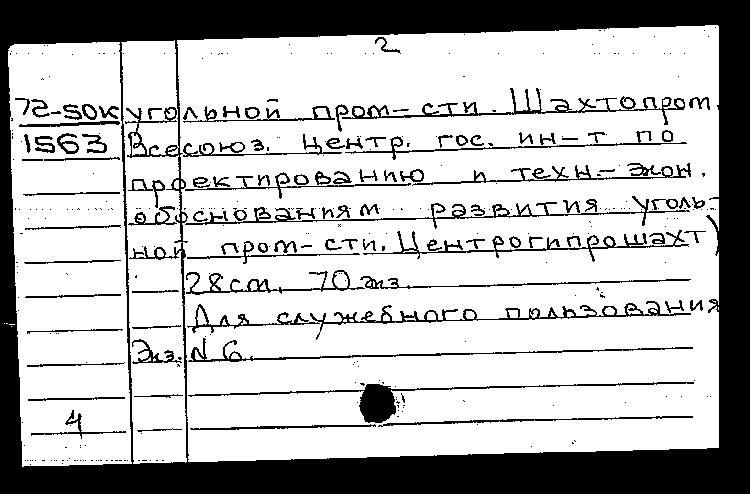 2
72-50к угольной пром-сти. Шахтопром.
1563 Всесоюз. Центр. гос. ин-т по
проектированию и техн-экон.
обоснованиям развития уголь-
ной пром-сти. Центрогипрошахт)
28см. 70 экз.
Для служебного пользования
Экз. N 6.
4